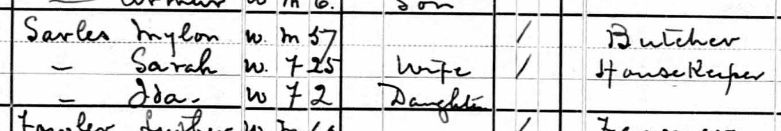 W M 6. Son
Sarles Mylon W. M 57 / Butcher
— Sarah W. F 25 Wife / Housekeeper
— Ida. W F 2 Daughter